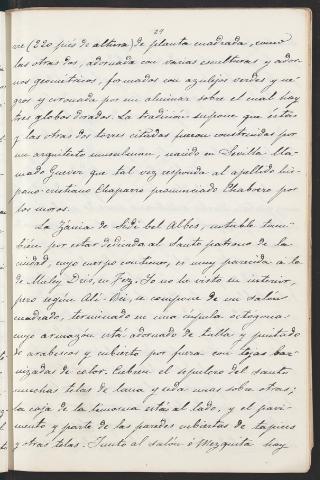 29
rre (220 piés de altura) de planta cuadrada, como
las otras dos, adornada con varias esculturas y ador-
nos geométricos, formados con azulejos verdes y ne-
gros y coronada por un alminar sobre el cual hay
tres globos dorados. La tradición supone que éstas
y las otras dos torres citadas fueron construidas por
un arquitecto musulman, nacido en Sevilla lla-
mado Guever que tal vez responda al apellido his-
pano-cristiano Chaparro pronunciado Chabrero por
los moros.
La Záuia de Sidi bel Abbes, notable tam-
bien por estar dedicada al Santo patrono de la
ciudad, cuyo cuerpo contiene, es muy parecida a la
de Muley Dris, en Fez. Yo no he visto su interior,
pero según Alí-Bei, se compone de un salon
cuadrado, terminado en una cúpula octogona
cuyo armazón está adornado de talla y pintado
de arabescos y cubierto por fuera con tejas bar-
nizadas de color. Cubren el sepulcro del santo
muchas telas de lana y seda unas sobre otras;
la caja de la limosna está al lado, y el pavi-
mento y parte de las paredes cubiertas de tapices
y otras telas. Junto al salón ó Mezquita hay